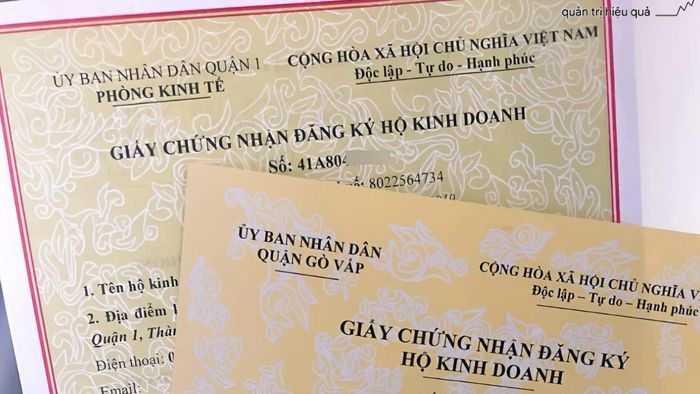 quản trị hiệu quả
ỦY BAN NHÂN DÂN QUẬN 1
PHÒNG KINH TẾ
CỘNG HÒA XÃ HỘI CHỦ NGHĨA VIỆT NAM
Độc lập - Tự do - Hạnh phúc
GIẤY CHỨNG NHẬN ĐĂNG KÝ HỘ KINH DOANH
Số: 41A804
8022564734
1. Tên hộ kinh
2. Địa điểm
Quận 1, Thàn
Điện thoại: 0
Email:
ỦY BAN NHÂN DÂN
QUẬN GÒ VẤP
CỘNG HÒA XÃ HỘI CHỦ NGHĨA V
Độc lập – Tự do – Hạnh phúc
GIẤY CHỨNG NHẬN ĐĂNG KÝ
HỘ KINH DOANH